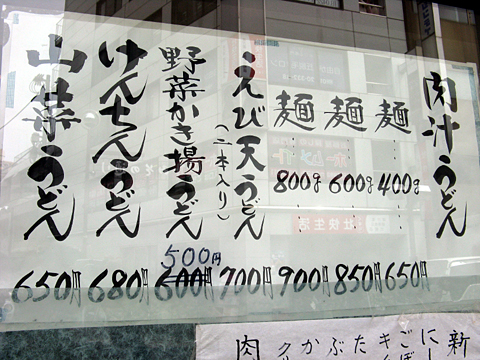 肉汁うどん
麺……400g 650円
麺……600g 850円
麺……800g 900円
えび天うどん
(二本入り)
700円
野菜かき揚うどん
600円
500円
けんちんうどん
680円
山菜うどん
650円
新
にし
ごぼ
キ
た
ぶ
か
ク
肉